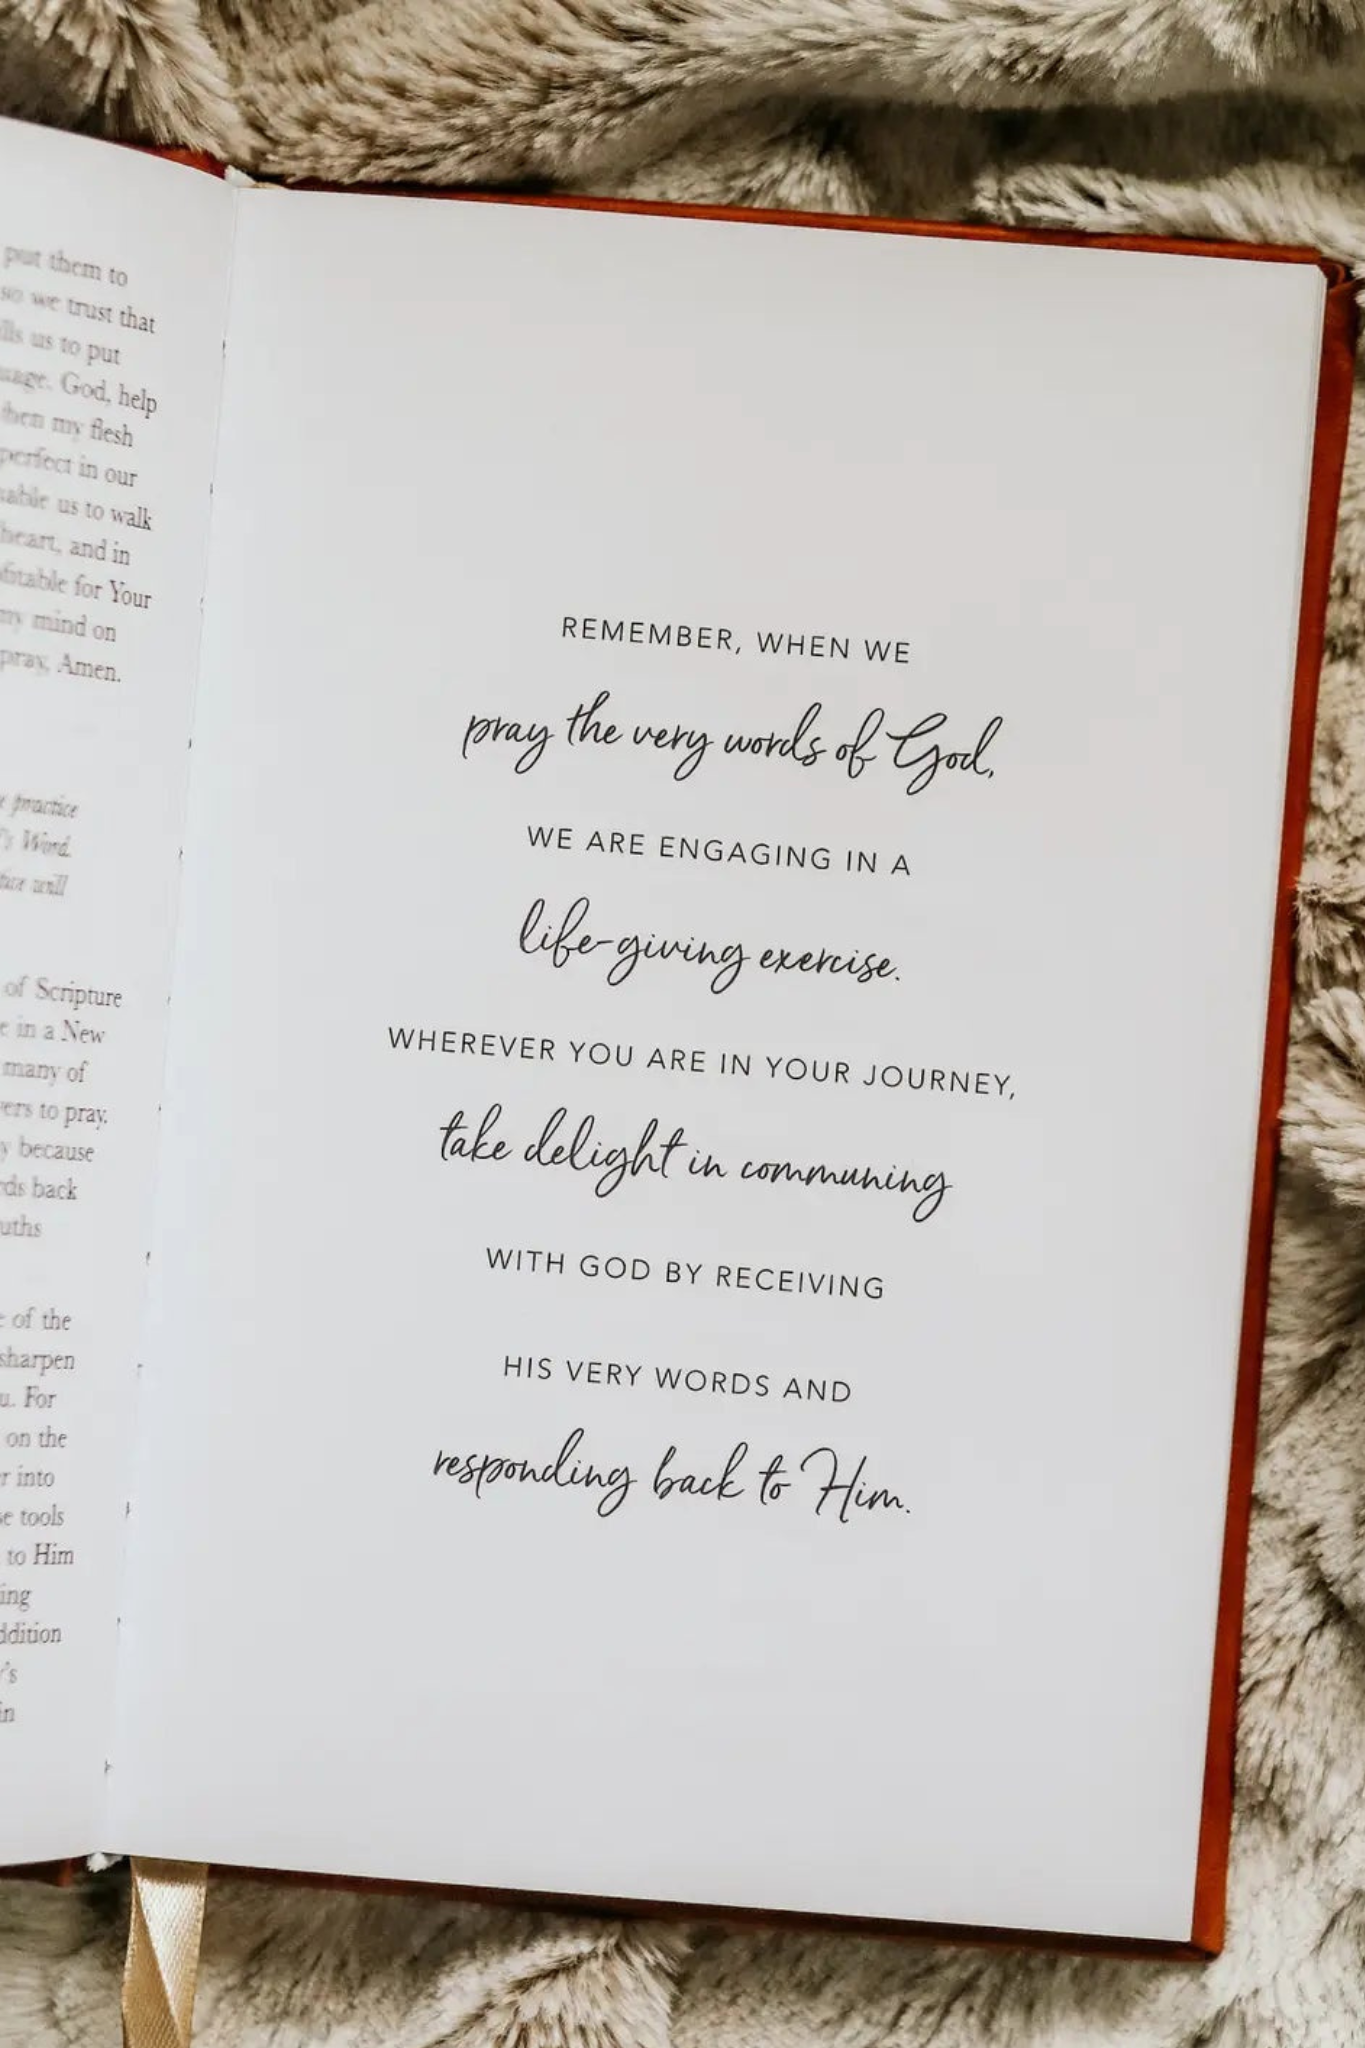 put them to
so we trust that
us to put
God, help
my flesh
perfect in our
us to walk
heart, and in
for Your
my mind on
pray, Amen.
practice
Word.
will
of Scripture
in a New
many of
to pray.
because
back
of the
sharpen
For
on the
into
tools
to Him
REMEMBER, WHEN WE
pray the very words of God,
WE ARE ENGAGING IN A
life-giving exercise.
WHEREVER YOU ARE IN YOUR JOURNEY,
take delight in communing
WITH GOD BY RECEIVING
HIS VERY WORDS AND
responding back to Him.